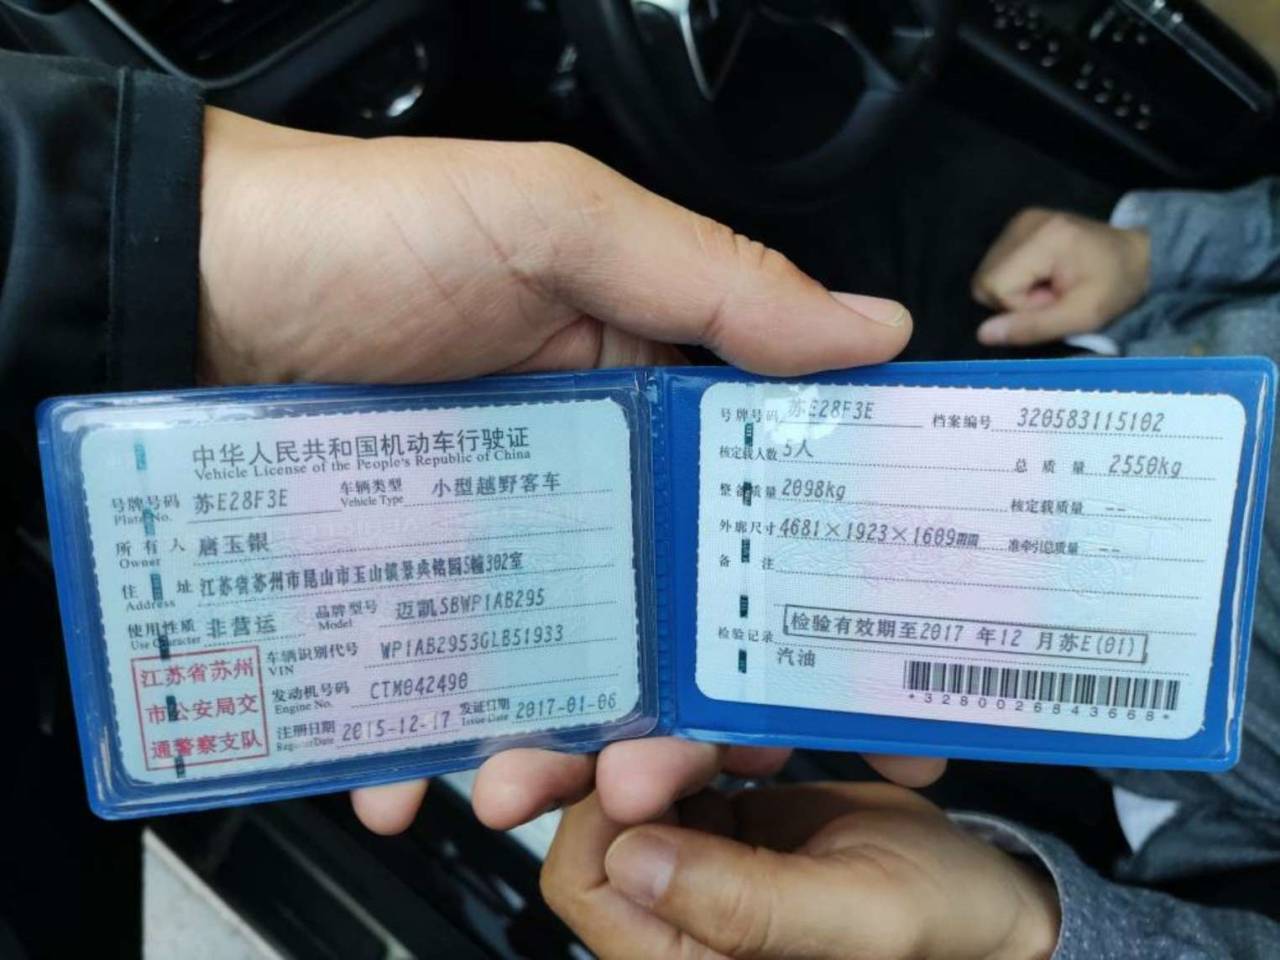 中华人民共和国机动车行驶证
Vehicle License of the People's Republic of China
号牌号码 苏E28F3E 车辆类型 小型越野客车
Plate No. Vehicle Type
所有人 唐玉银
Owner
住址 江苏省苏州市昆山市玉山镇景典铭园5幢302室
Address
使用性质 非营运 品牌型号 迈凯SBWP1AB295
Use Character Model
车辆识别代号 WP1AB2953GLB51933
VIN
发动机号码 CTM042490
Engine No.
注册日期 2015-12-17 发证日期 2017-01-06
Register Date Issue Date
江苏省苏州
市公安局交
通警察支队
号牌号码 苏E28F3E 档案编号 320583115102
核定载人数 5人 总质量 2550kg
整备质量 2098kg 核定载质量 --
外廓尺寸 4681×1923×1609 准牵引总质量 --
备注
检验记录 检验有效期至2017 年12 月苏E(01)
汽油
*3280026843668*